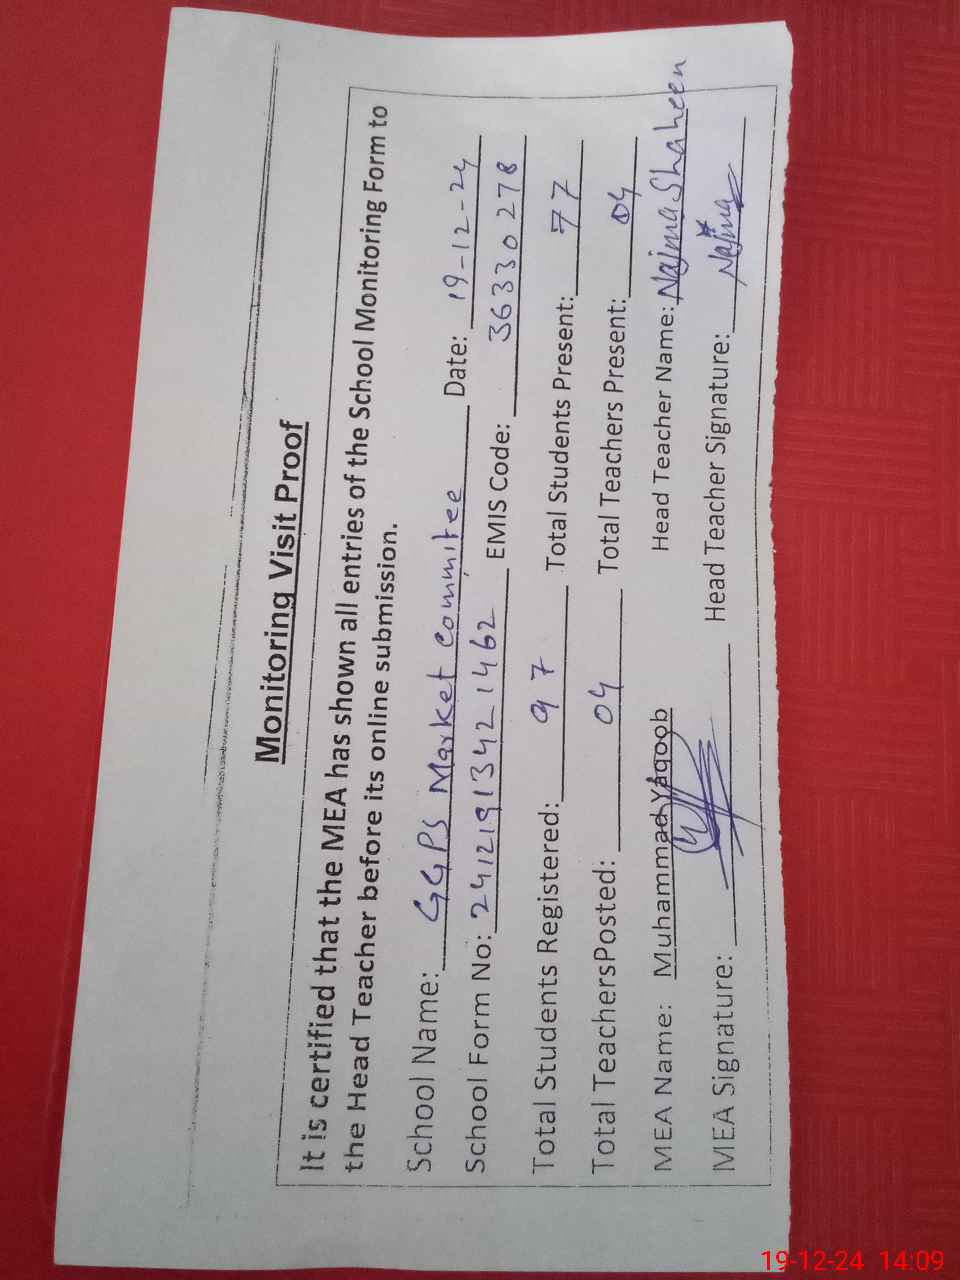 Monitoring Visit Proof
It is certified that the MEA has shown all entries of the School Monitoring Form to
the Head Teacher before its online submission.
School Name: GGPS Market Committee Date: 19-12-24
School Form No: 24121913421462 EMIS Code: 36330278
Total Students Registered: 97 Total Students Present: 77
Total TeachersPosted: 04 Total Teachers Present: 04
MEA Name: Muhammad Yaqoob Head Teacher Name: Najma Shaheen
MEA Signature: Head Teacher Signature: Najma
19-12-24 14:09